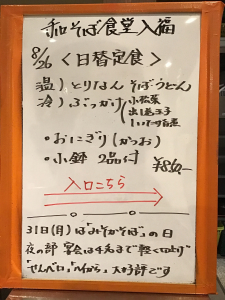 和そば食堂入福
8/26 <日替定食>
温)とりなんそば・うどん
冷)ぶっかけ
小松菜
出し巻玉子
しいたけ旨煮
・おにぎり(かつお)
・小鉢2品付 ¥850-
入口こちら
31日(月)は「みそかそば」の日
夜の部 宴会は4名まで軽く
「せんべロ」「ハルから」大好評です